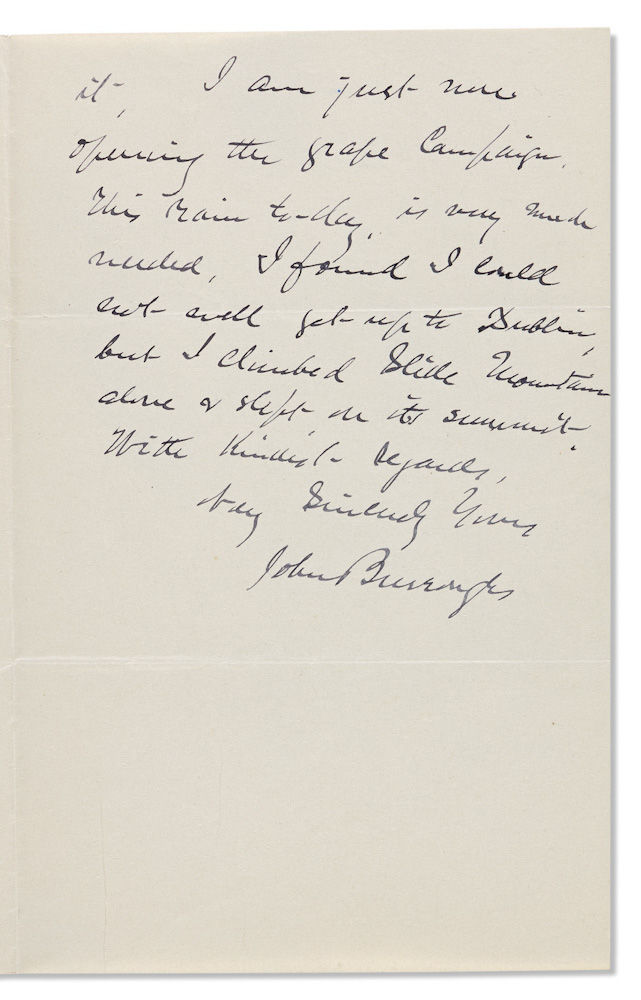 it. I am just now
opening the grape Campaign.
This rain to-day, is very much
needed, I found I could
not well get up to Dublin,
but I climbed Slide Mountain
alone & slept on its summit.
With Kindest regards,
Very Sincerely Yours
John Burroughs